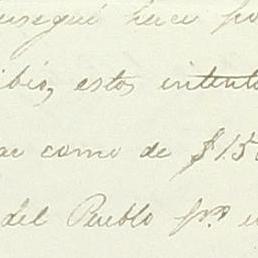 nseguí hace po
ibió, estos intento
ar como de $15
del Pueblo pro